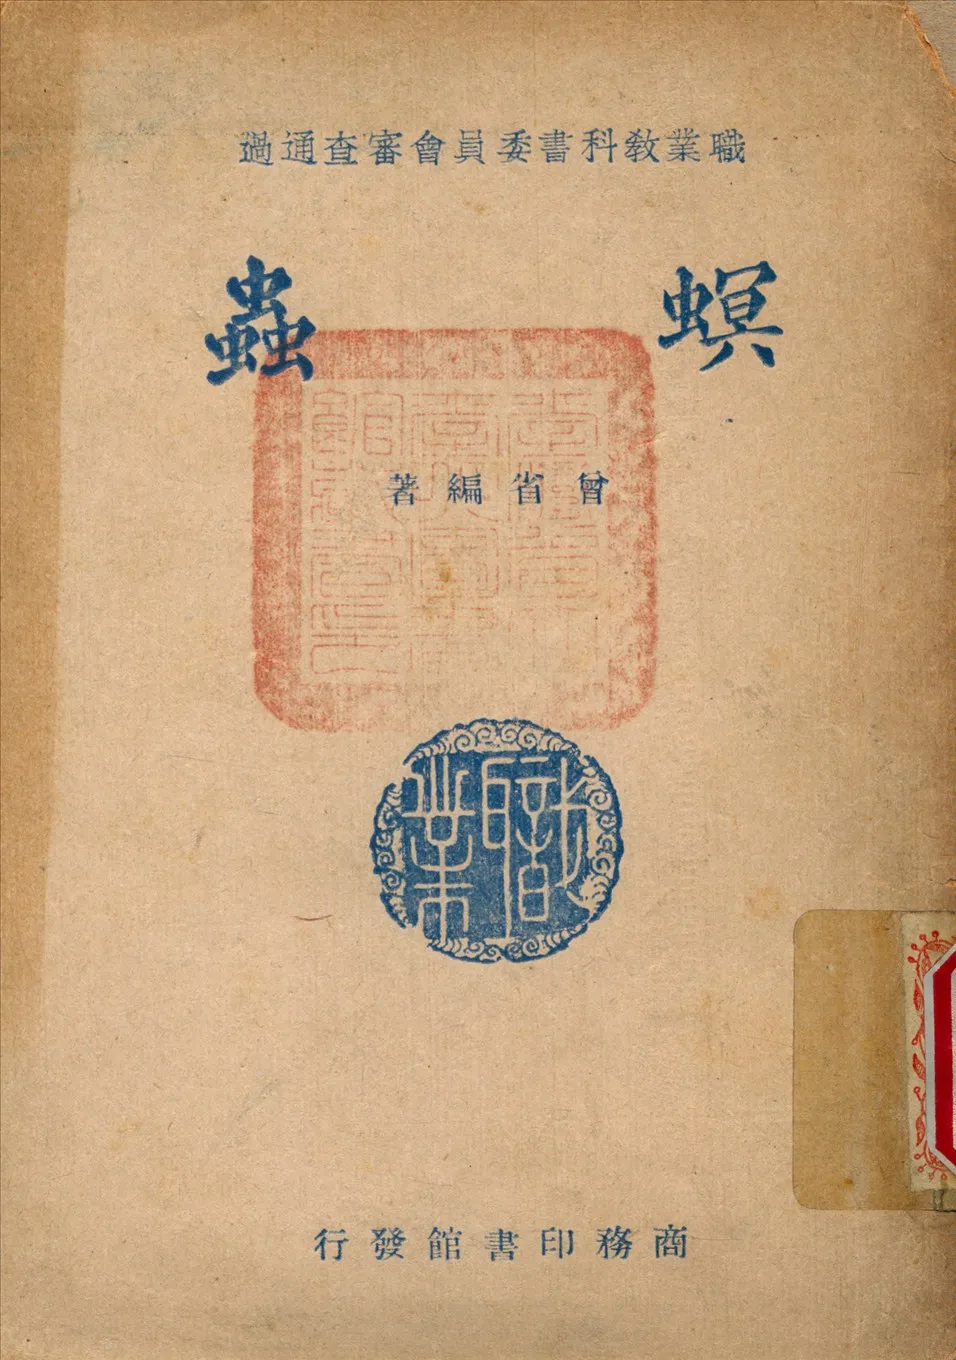 職業教科書委員會審查通過
螟蟲
曾省編著
職業
商務印書館發行